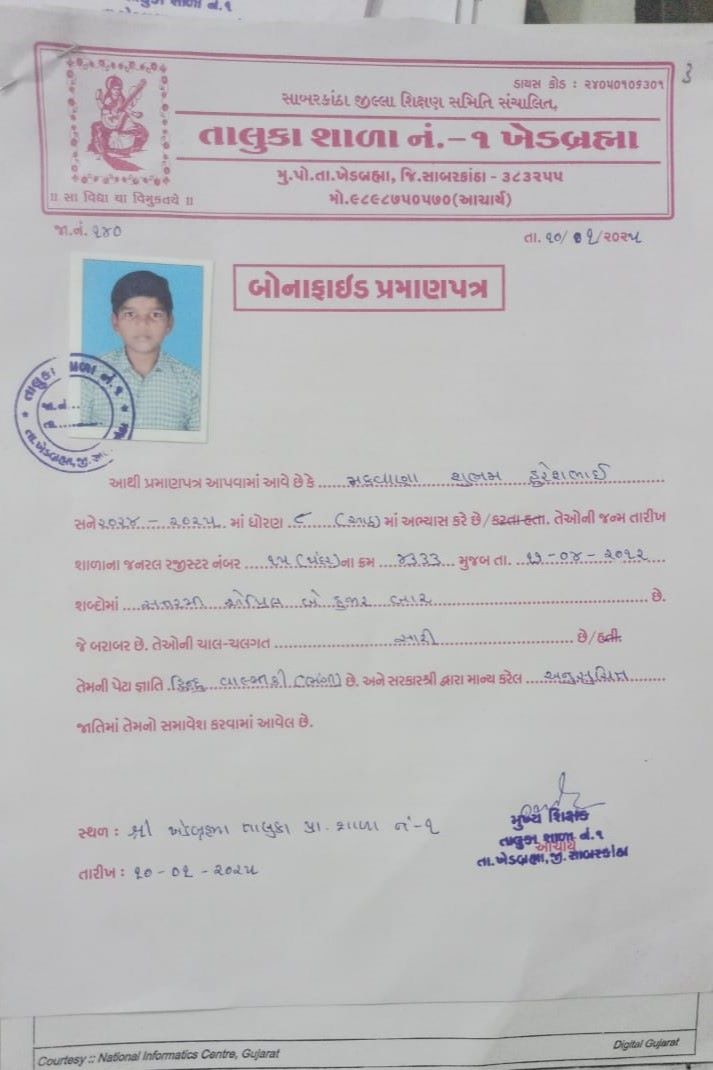 તાલુકા શાળા નં.૧
૩
ડાયસ કોડ : ૨૪૦૫૦૧૦૬૩૦૧
સાબરકાંઠા જીલ્લા શિક્ષણ સમિતિ સંચાલિત,
તાલુકા શાળા નં.-૧ ખેડબ્રહ્મા
મુ.પો.તા.ખેડબ્રહ્મા, જિ.સાબરકાંઠા - ૩૮૩૨૫૫
મો.૯૮૯૮૭૫૦૫૭૦(આચાર્ય)
॥ સા વિદ્યા યા વિમુક્તયે ॥
જા.નં. ૧૪૦
તા. ૧૦/૦૧/૨૦૨૫
બોનાફાઈડ પ્રમાણપત્ર
તાલુકા શાળા નં.૧
જા.નં...
તા......
તા.ખેડબ્રહ્મા,જી.સા.
આથી પ્રમાણપત્ર આપવામાં આવે છેકે મકવાણા શુભમ હરેશભાઈ
સને ૨૦૨૪ - ૨૦૨૫ માં ધોરણ ૮ (આઠ) માં અભ્યાસ કરે છે/કરતા હતા. તેઓની જન્મ તારીખ
શાળાના જનરલ રજીસ્ટર નંબર ૧૫ (પંદર) ના ક્રમ ૪૩૩૩ મુજબ તા. ૧૭-૦૪-૨૦૧૨
શબ્દોમાં સત્તરમી એપ્રિલ બે હજાર બાર છે.
જે બરાબર છે. તેઓની ચાલ-ચલગત સારી છે/હતી.
તેમની પેટા જ્ઞાતિ હિન્દુ વાલ્મીકી (ભંગી) છે. અને સરકારશ્રી દ્વારા માન્ય કરેલ અનુસુચિત
જાતિમાં તેમનો સમાવેશ કરવામાં આવેલ છે.
સ્થળ : શ્રી ખેડબ્રહ્મા તાલુકા પ્રા. શાળા નં-૧
તારીખ : ૧૦-૦૧-૨૦૨૫
મુખ્ય શિક્ષક
તાલુકા શાળા નં.૧
આચાર્ય
તા.ખેડબ્રહ્મા,જી.સાબરકાંઠા
Courtesy :: National Informatics Centre, Gujarat
Digital Gujarat